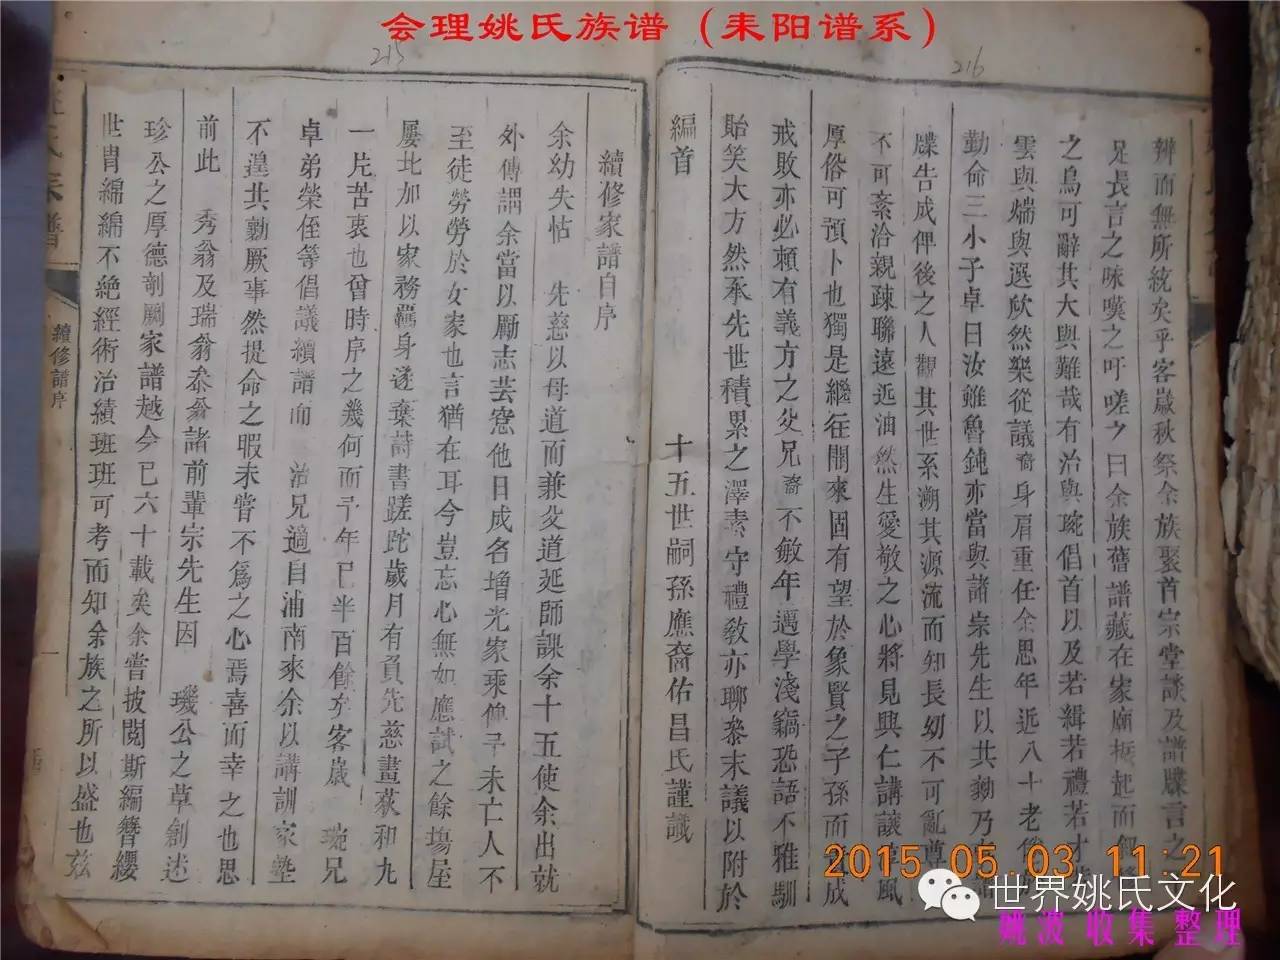 会理姚氏族谱（耒阳谱系）
216
辨而無所統矣乎客歲秋祭余族聚首宗堂談及譜牒言之
兄長言之咏嘆之吁嗟之曰余族舊譜藏在家廟振起而
之烏可辭其大與難哉有治與琬倡首以及若緝若禮若才
雲與煓與選欣然樂從議裔身肩重任余思年近八十老
勤命三小子卓曰汝雖魯鈍亦當與諸宗先生以共勷乃
牒告成俾後之人觀其世系溯其源流而知長幼不可亂尊
不可紊洽親疎聯遠近油然生愛敬之心將見興仁講讓 風
厚俗可預卜也獨是繼往開來固有望於象賢之子孫而 成
戒敗亦必賴有義方之父兄裔不敏年邁學淺竊恐語不雅馴
貽笑大方然承先世積累之澤素守禮敎亦聊參末議以附於
編首
十五世嗣孫應裔佑昌氏謹識
215
續修家譜自序
余幼失怙 先慈以母道而兼父道延師課余十五使余出就
外傳謂余當以勵志芸窓他日成名增光家乘俾予未亡人不
至徒勞勞於女家也言猶在耳今豈忘心無如應試之餘塲屋
屢北加以家務羈身遂棄詩書蹉跎歲月有負先慈畫荻和九
一片苦衷也曾時序之幾何而予年已半百餘矣客歲 琬兄
卓弟榮侄等倡議續譜而 治兄適自浦南來余以講訓家塾
不遑共勷厥事然提命之暇未嘗不爲之心焉喜而幸之也思
前此 秀翁及瑞翁泰翁諸前輩宗先生因 璣公之草創述
珍公之厚德剞劂家譜越今已六十載矣余嘗披閱斯編簪纓
世胄綿綿不絶經術治績班班可考而知余族之所以盛也玆
續修譜序
2015.05.03 11:21
世界姚氏文化
姚波 收集整理